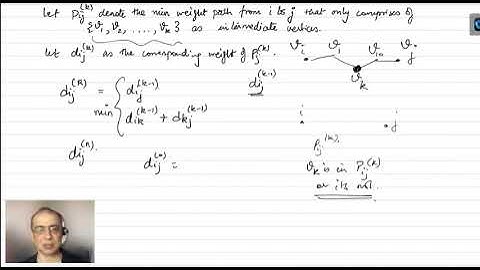 Let Pij^(k) denote the min weight path from i to j that only comprises of
{v1, v2, ...., vk} as intermediate vertices.
Let dij^(k) as the corresponding weight of Pij^(k).
vi v1 v10 vj
vk
dij^(k-1)
dij^(k) = min { dij^(k-1)
dik^(k-1) + dkj^(k-1)
i j
dij^(k) dij^(0) =
Pij^(k),
vk is in Pij^(k)
or it is not.